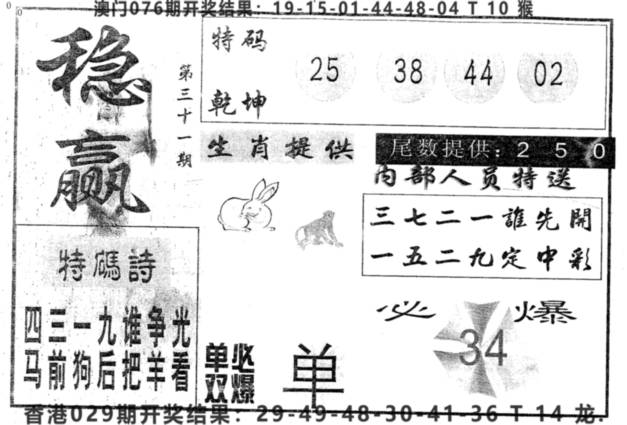 澳门076期开奖结果：19-15-01-44-48-04 T 10 猴
稳赢
第三十一期
特码
乾坤
25 38 44 02
生肖提供
尾数提供：2 5 0
内部人员特送
三七二一誰先開
一五二九定中彩
特碼詩
四三一九谁争光
马前狗后把羊看
必爆
34
单双
必爆
单
香港029期开奖结果：29-49-48-30-41-36 T 14 龙.